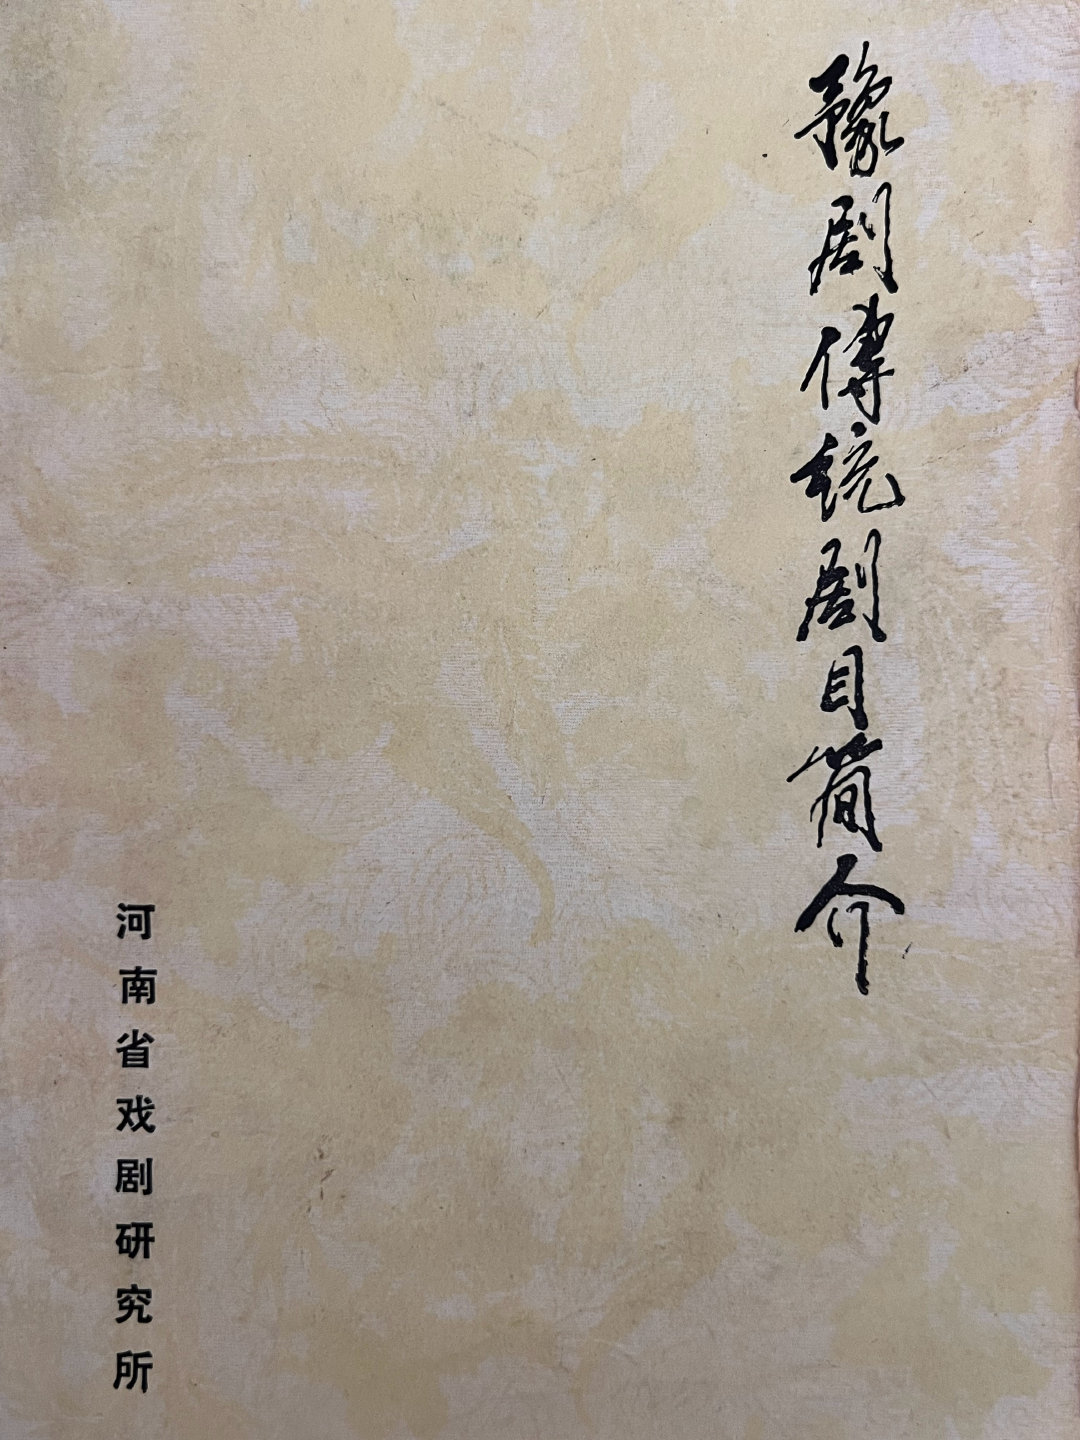 豫剧傳統剧目简介
河南省戏剧研究所